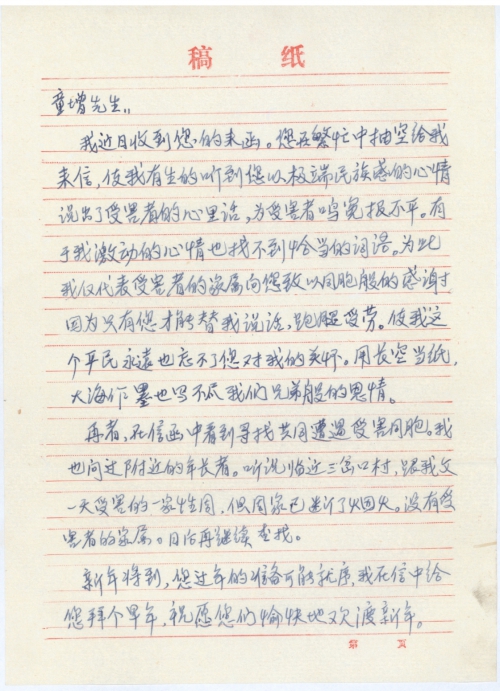 稿 纸
童增先生:
我近日收到您的来函。您在繁忙中抽空给我
来信,使我有生的听到您以极端民族感的心情
说出了受害者的心里话,为受害者鸣冤报不平。有
于我激动的心情也找不到恰当的词语。为此
我仅代表受害者的家属向您致以同胞般的感谢
因为只有您才能替我说话,跑腿受劳。使我这
个平民永远也忘不了您对我的关怀。用长空当纸,
大海作墨也写不尽我们兄弟般的恩情。
再者,在信函中看到寻找共同遭遇受害同胞。我
也问过附近的年长者。听说临近三岔口村,跟我父
一天受害的一家姓周,但周家已进行了火。没有受
害者的家属。日后再继续查找。
新年将到,您过年的准备可能就序,我在信中给
您拜个早年,祝愿您们愉快地欢渡新年。
第 页